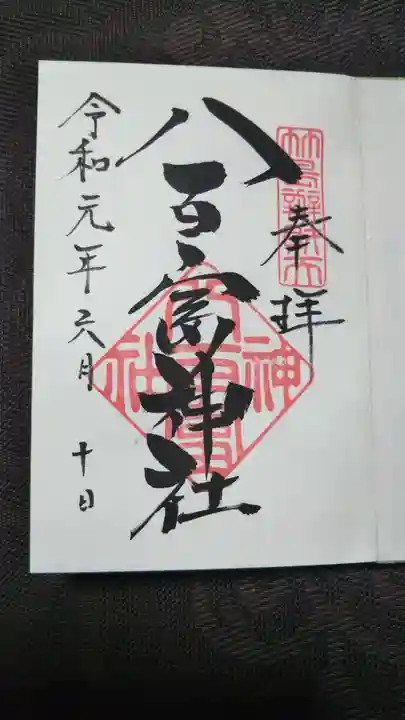 奉拝
竹島辨天
八百富神社
八百富神社
令和元年六月 十日